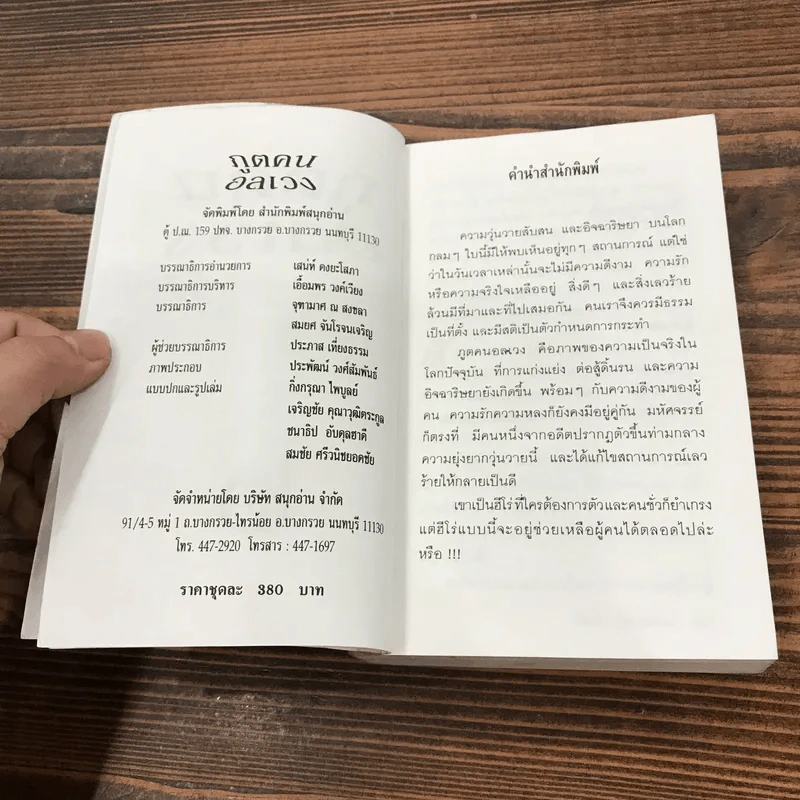 ภูตคน
อลเวง
จัดพิมพ์โดย สำนักพิมพ์สนุกอ่าน
ตู้ ป.ณ. 159 ปทจ. บางกรวย อ.บางกรวย นนทบุรี 11130
บรรณาธิการอำนวยการ เสน่ห์ คงยะโสภา
บรรณาธิการบริหาร เอื้อมพร วงค์เวียง
บรรณาธิการ จุฑามาศ ณ สงขลา
สมยศ จันโรจนเจริญ
ผู้ช่วยบรรณาธิการ ประภาส เที่ยงธรรม
ภาพประกอบ ประพัฒน์ วงศ์สัมพันธ์
แบบปกและรูปเล่ม กิ่งกรุณา ไพบูลย์
เจริญชัย คุณาวุฒิตระกูล
ชนาธิป อับดุลฮาดี
สมชัย ศรีวนิชยอดชัย
จัดจำหน่ายโดย บริษัท สนุกอ่าน จำกัด
91/4-5 หมู่ 1 ถ.บางกรวย-ไทรน้อย อ.บางกรวย นนทบุรี 11130
โทร. 447-2920 โทรสาร : 447-1697
ราคาชุดละ 380 บาท
คำนำสำนักพิมพ์
ความวุ่นวายสับสน และอิจฉาริษยา บนโลก
กลมๆ ใบนี้มีให้พบเห็นอยู่ทุกๆ สถานการณ์ แต่ใช่
ว่าในวันเวลาเหล่านั้นจะไม่มีความดีงาม ความรัก
หรือความจริงใจเหลืออยู่ สิ่งดีๆ และสิ่งเลวร้าย
ล้วนมีที่มาและที่ไปเสมอกัน คนเราจึงควรมีธรรม
เป็นที่ตั้ง และมีสติเป็นตัวกำหนดการกระทำ
ภูตคนอลเวง คือภาพของความเป็นจริงใน
โลกปัจจุบัน ที่การแก่งแย่ง ต่อสู้ดิ้นรน และความ
อิจฉาริษยายังเกิดขึ้น พร้อมๆ กับความดีงามของผู้
คน ความรักความหลงก็ยังคงมีอยู่คู่กัน มหัศจรรย์
ก็ตรงที่ มีคนหนึ่งจากอดีตปรากฏตัวขึ้นท่ามกลาง
ความยุ่งยากวุ่นวายนี้ และได้แก้ไขสถานการณ์เลว
ร้ายให้กลายเป็นดี
เขาเป็นฮีโร่ที่ใครต้องการตัวและคนชั่วก็ยำเกรง
แต่ฮีโร่แบบนี้จะอยู่ช่วยเหลือผู้คนได้ตลอดไปล่ะ
หรือ !!!